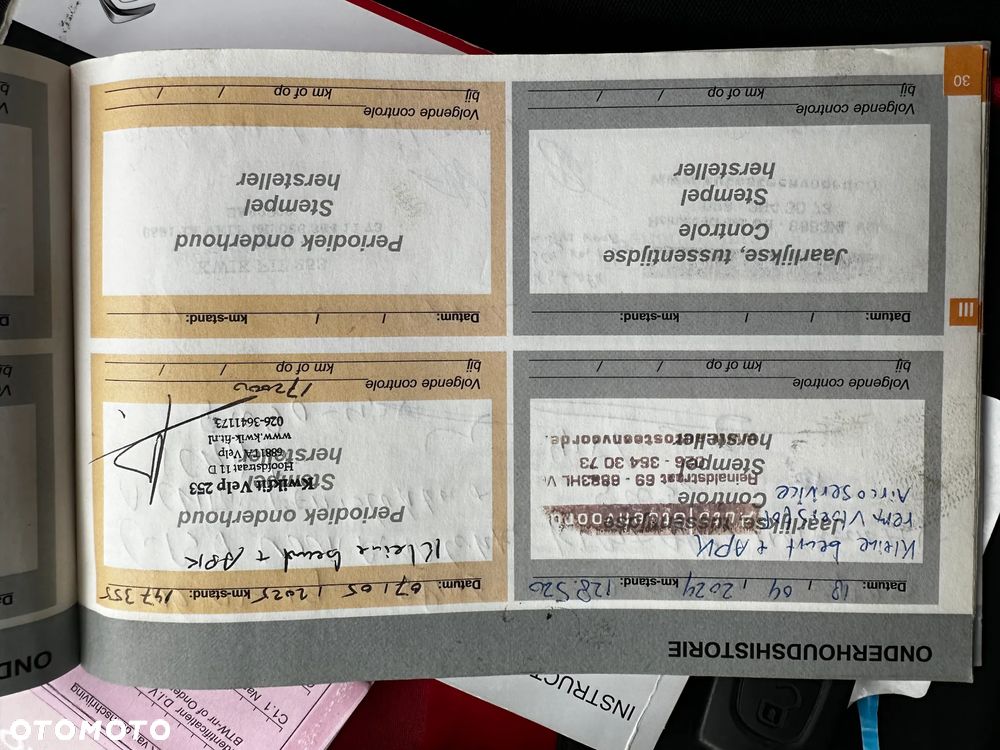 ONDERHOUDSHISTORIE
Datum: 18 / 04 / 2024 km-stand: 128.520
Kleine beurt + APK
Jaarlijkse, tussentijdse
Controle
Stempel
hersteller
Aircoservice
Reinaldstraat 69 - 6883HL V
026 - 364 30 73
Volgende controle
bij / / km of op
Datum: 07 / 05 / 2025 km-stand: 147.355
Kleine beurt + APK
Periodiek onderhoud
Stempel
hersteller
Kwikfit Velp 253
Hoofdstraat 11 D
6881TA Velp
www.kwik-fit.nl
026-3641173
Volgende controle 172000
bij / / km of op
III
Datum: / / km-stand:
Jaarlijkse, tussentijdse
Controle
Stempel
hersteller
Volgende controle
bij / / km of op
Datum: / / km-stand:
Periodiek onderhoud
Stempel
hersteller
Volgende controle
bij / / km of op
30
INSTRUCT
C1.1
BTW-nr of Onder
Identificatienr D.I.V
OTOMOTO